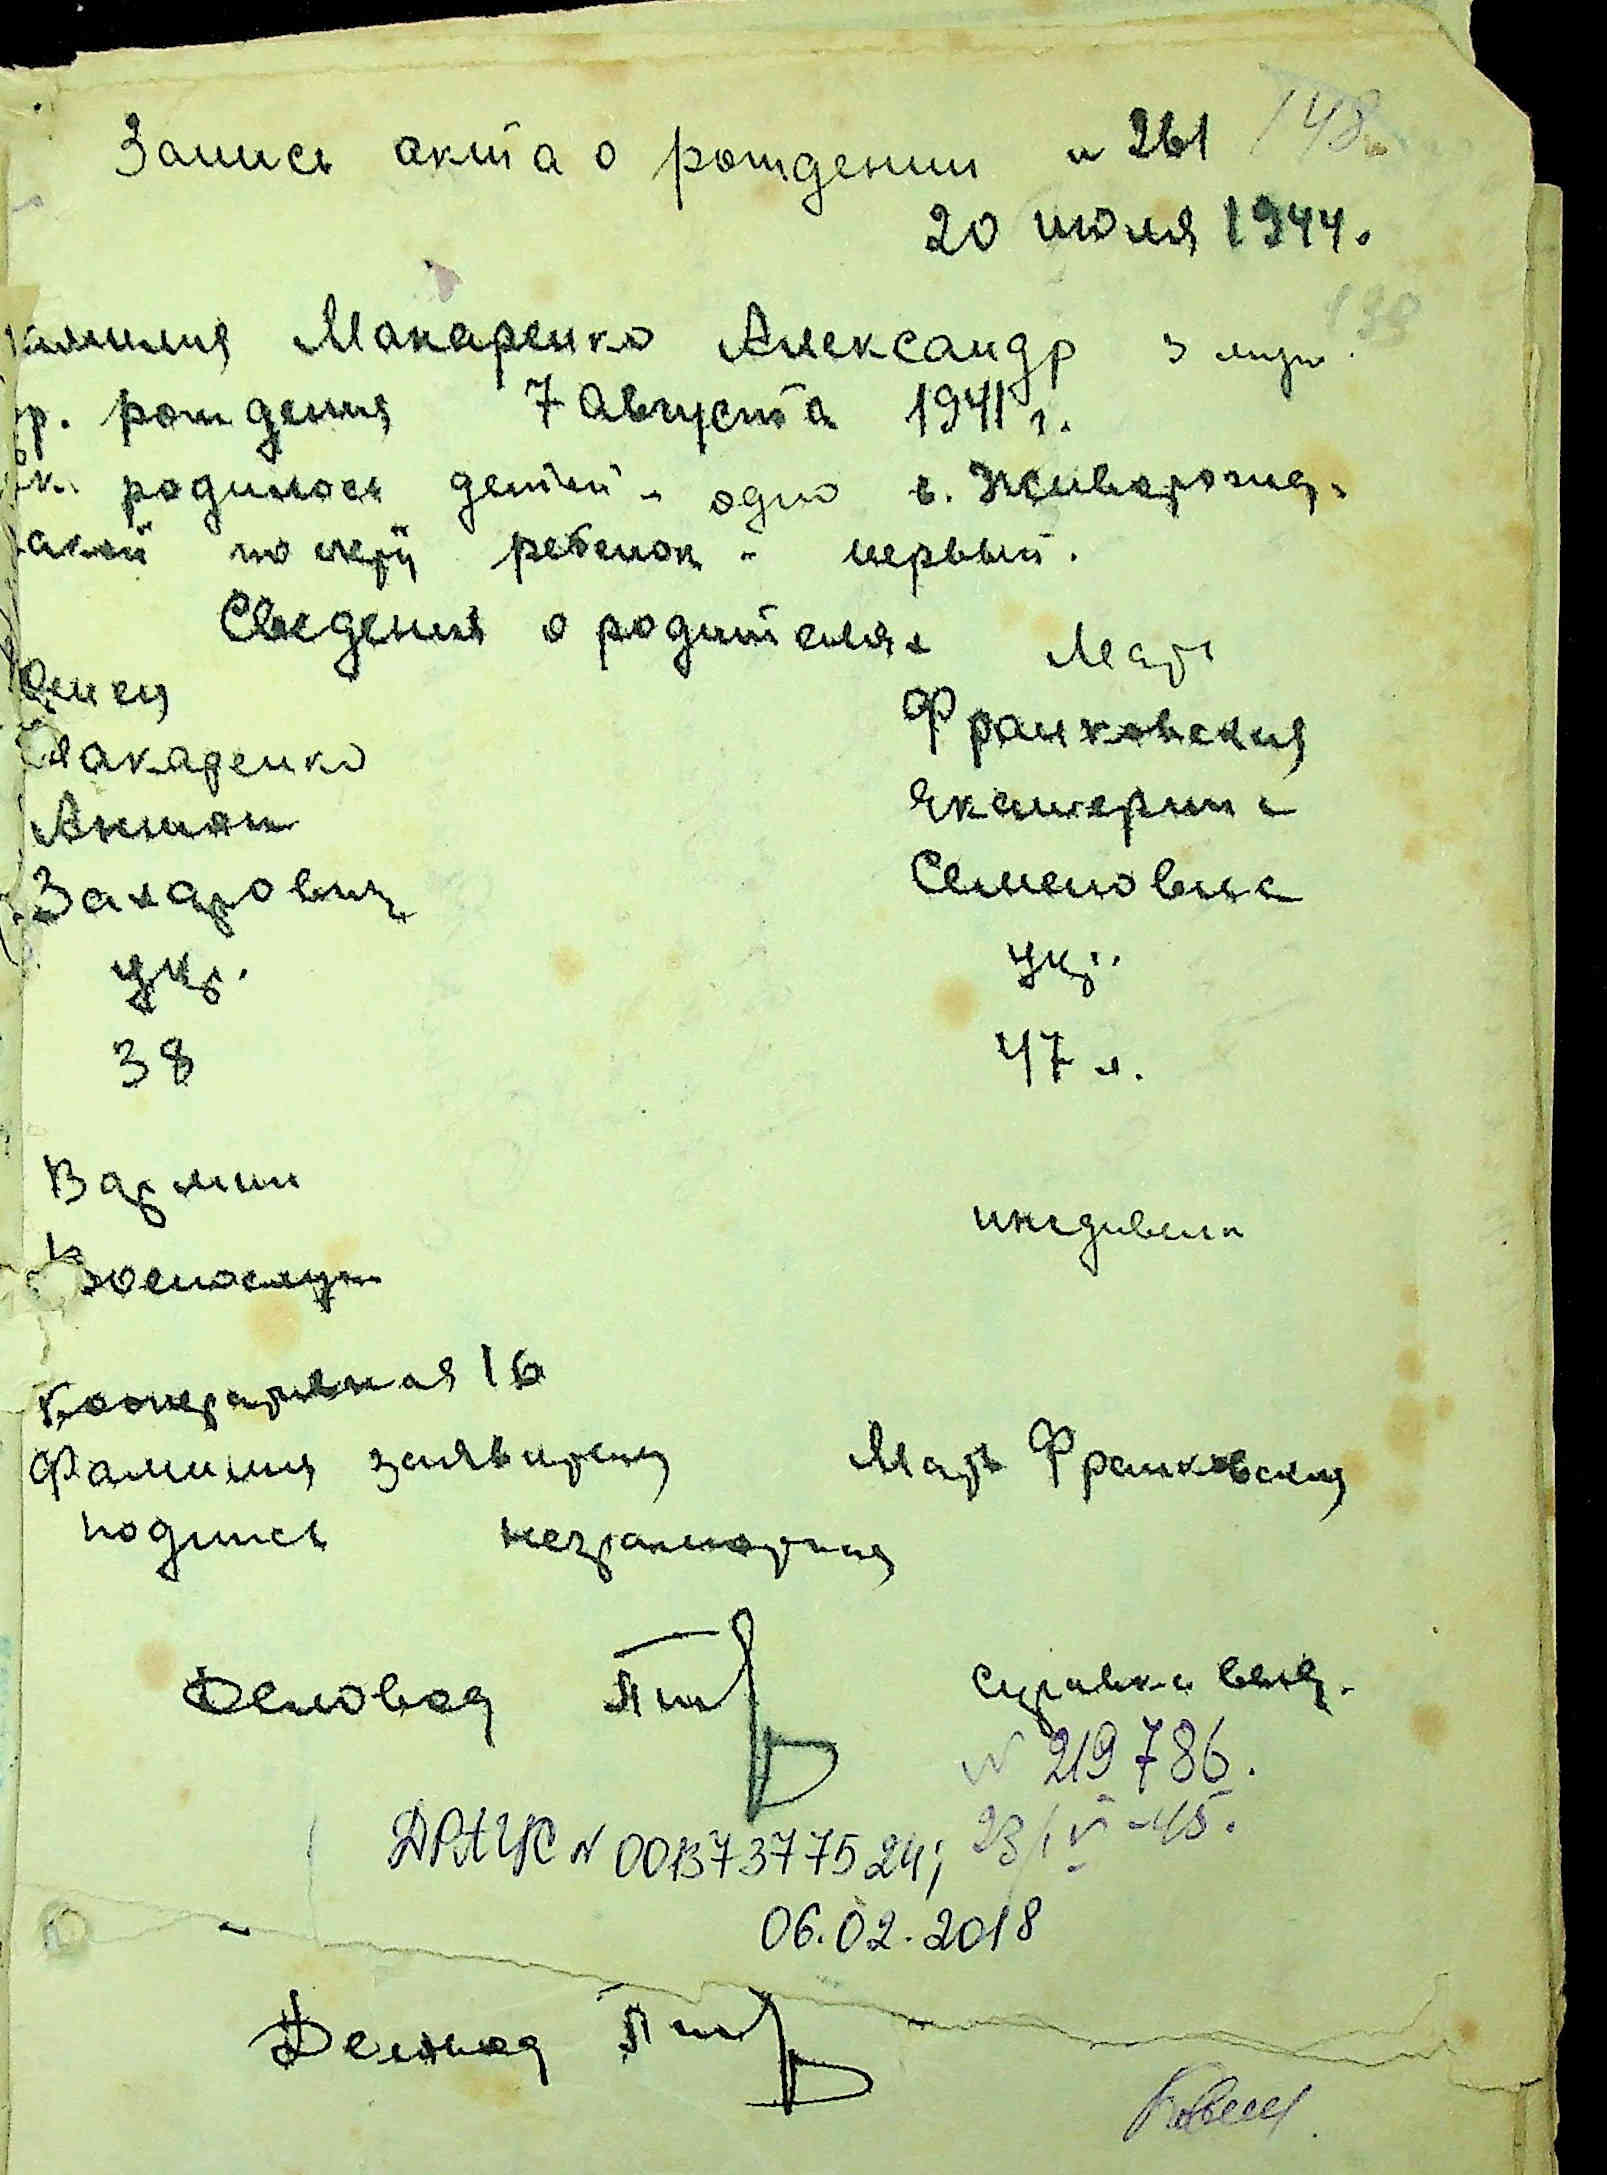 Запись акта о рождении № 261
148
20 июля 1944.
139
амилия Макаренко Александр
р. рождения 7 августа 1941 г.
родилось детей - одно в. Живорожд.
акой по счету ребенок - первый.
Сведения о родителях
Отец Мать
Макаренко Франковская
Антон Екатерина
Захарович Семеновна
укр. укр.
38 47 л.
В армии
иждивен
Военнослуж
Кооперативная 16
Фамилия заявителя Мать Франковская
подпись неграмотная
Деловод
Справка выд.
№ 219786.
23/IV-45.
ДРАЦС № 00137377524;
06.02.2018
Деловод